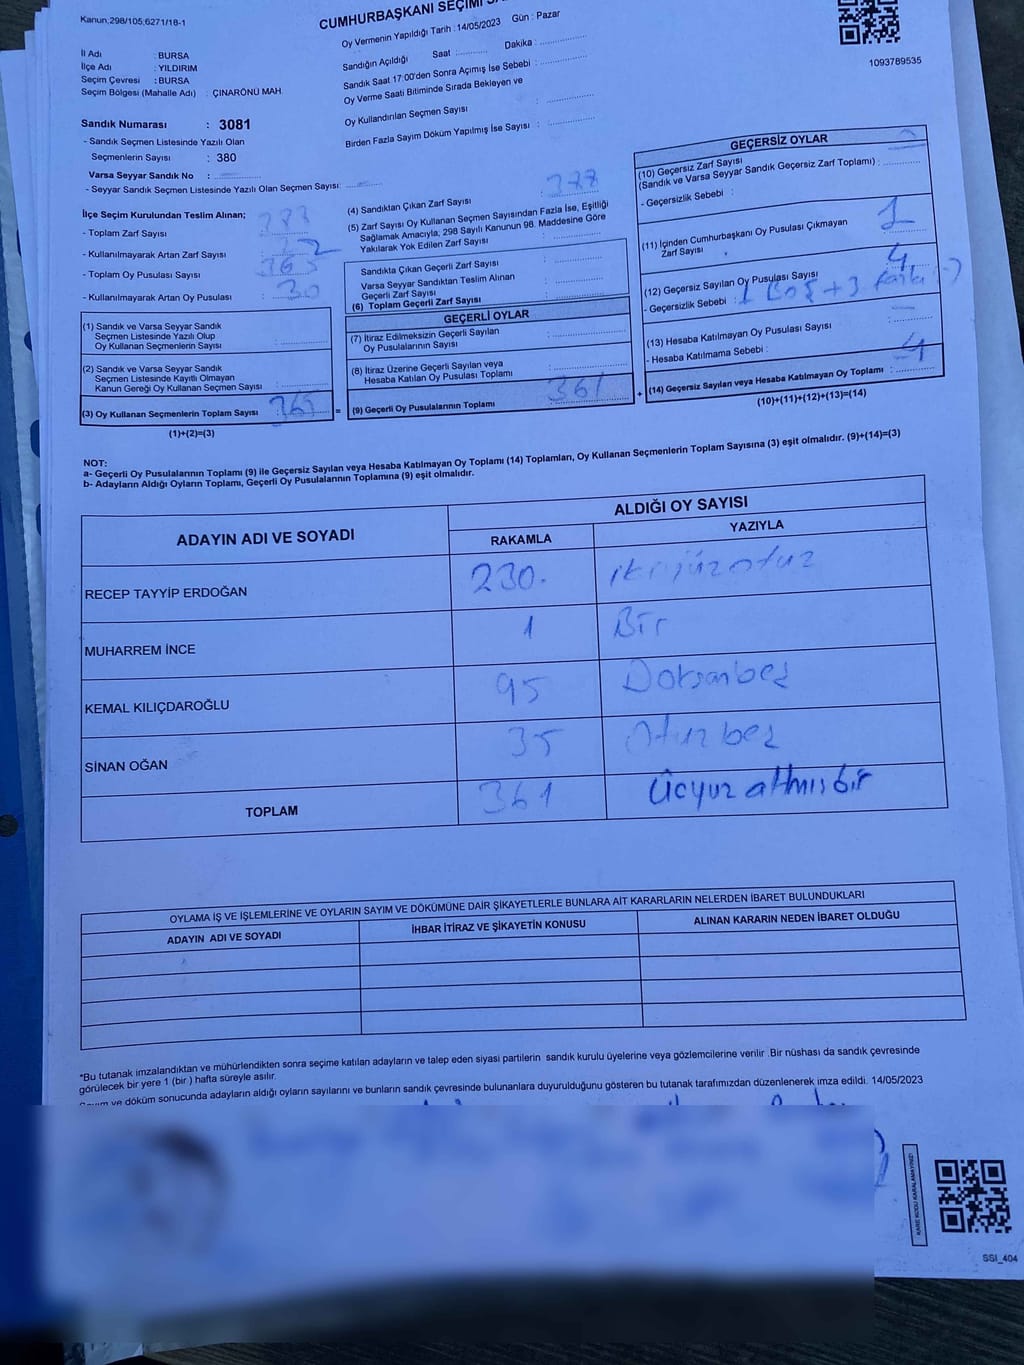 Kanun,298/105;6271/18-1
CUMHURBAŞKANI SEÇİMİ
Oy Vermenin Yapıldığı Tarih : 14/05/2023 Gün : Pazar
Sandığın Açıldığı Saat : Dakika :
Sandık Saat 17:00'den Sonra Açımış İse Sebebi :
Oy Verme Saati Bitiminde Sırada Bekleyen ve
Oy Kullandırılan Seçmen Sayısı :
Birden Fazla Sayım Döküm Yapılmış İse Sayısı :
1093789535
İl Adı : BURSA
İlçe Adı : YILDIRIM
Seçim Çevresi : BURSA
Seçim Bölgesi (Mahalle Adı) : ÇINARÖNÜ MAH.
Sandık Numarası : 3081
- Sandık Seçmen Listesinde Yazılı Olan
Seçmenlerin Sayısı : 380
Varsa Seyyar Sandık No :
- Seyyar Sandık Seçmen Listesinde Yazılı Olan Seçmen Sayısı:
İlçe Seçim Kurulundan Teslim Alınan;
- Toplam Zarf Sayısı :
- Kullanılmayarak Artan Zarf Sayısı :
- Toplam Oy Pusulası Sayısı :
- Kullanılmayarak Artan Oy Pusulası : 30
(1) Sandık ve Varsa Seyyar Sandık
Seçmen Listesinde Yazılı Olup
Oy Kullanan Seçmenlerin Sayısı :
(2) Sandık ve Varsa Seyyar Sandık
Seçmen Listesinde Kayıtlı Olmayan
Kanun Gereği Oy Kullanan Seçmen Sayısı :
(3) Oy Kullanan Seçmenlerin Toplam Sayısı : 365
(1)+(2)=(3)
=
(4) Sandıktan Çıkan Zarf Sayısı :
(5) Zarf Sayısı Oy Kullanan Seçmen Sayısından Fazla İse, Eşitliği
Sağlamak Amacıyla, 298 Sayılı Kanunun 98. Maddesine Göre
Yakılarak Yok Edilen Zarf Sayısı :
Sandıkta Çıkan Geçerli Zarf Sayısı :
Varsa Seyyar Sandıktan Teslim Alınan
Geçerli Zarf Sayısı :
(6) Toplam Geçerli Zarf Sayısı :
GEÇERLİ OYLAR
(7) İtiraz Edilmeksizin Geçerli Sayılan
Oy Pusulalarının Sayısı :
(8) İtiraz Üzerine Geçerli Sayılan veya
Hesaba Katılan Oy Pusulası Toplamı :
(9) Geçerli Oy Pusulalarının Toplamı : 361
+
GEÇERSİZ OYLAR
(10) Geçersiz Zarf Sayısı
(Sandık ve Varsa Seyyar Sandık Geçersiz Zarf Toplamı) :
- Geçersizlik Sebebi :
(11) İçinden Cumhurbaşkanı Oy Pusulası Çıkmayan
Zarf Sayısı : 1
(12) Geçersiz Sayılan Oy Pusulası Sayısı : 4
- Geçersizlik Sebebi : 1 Boş + 3 fazla
(13) Hesaba Katılmayan Oy Pusulası Sayısı :
- Hesaba Katılmama Sebebi :
(14) Geçersiz Sayılan veya Hesaba Katılmayan Oy Toplamı : 4
(10)+(11)+(12)+(13)=(14)
NOT:
a- Geçerli Oy Pusulalarının Toplamı (9) ile Geçersiz Sayılan veya Hesaba Katılmayan Oy Toplamı (14) Toplamları, Oy Kullanan Seçmenlerin Toplam Sayısına (3) eşit olmalıdır. (9)+(14)=(3)
b- Adayların Aldığı Oyların Toplamı, Geçerli Oy Pusulalarının Toplamına (9) eşit olmalıdır.
ADAYIN ADI VE SOYADI
ALDIĞI OY SAYISI
RAKAMLA YAZIYLA
RECEP TAYYİP ERDOĞAN 230. ikiyüzotuz
MUHARREM İNCE 1 Bir
KEMAL KILIÇDAROĞLU 95 Doksanbeş
SİNAN OĞAN 35 Otuzbeş
TOPLAM 361 Üçyüz altmışbir
OYLAMA İŞ VE İŞLEMLERİNE VE OYLARIN SAYIM VE DÖKÜMÜNE DAİR ŞİKAYETLERLE BUNLARA AİT KARARLARIN NELERDEN İBARET BULUNDUKLARI
ADAYIN ADI VE SOYADI İHBAR İTİRAZ VE ŞİKAYETİN KONUSU ALINAN KARARIN NEDEN İBARET OLDUĞU
*Bu tutanak imzalandıktan ve mühürlendikten sonra seçime katılan adayların ve talep eden siyasi partilerin sandık kurulu üyelerine veya gözlemcilerine verilir .Bir nüshası da sandık çevresinde
görülecek bir yere 1 (bir ) hafta süreyle asılır.
Sayım ve döküm sonucunda adayların aldığı oyların sayılarını ve bunların sandık çevresinde bulunanlara duyurulduğunu gösteren bu tutanak tarafımızdan düzenlenerek imza edildi. 14/05/2023
KARE KODU KARALAMAYINIZ!
SSI_404